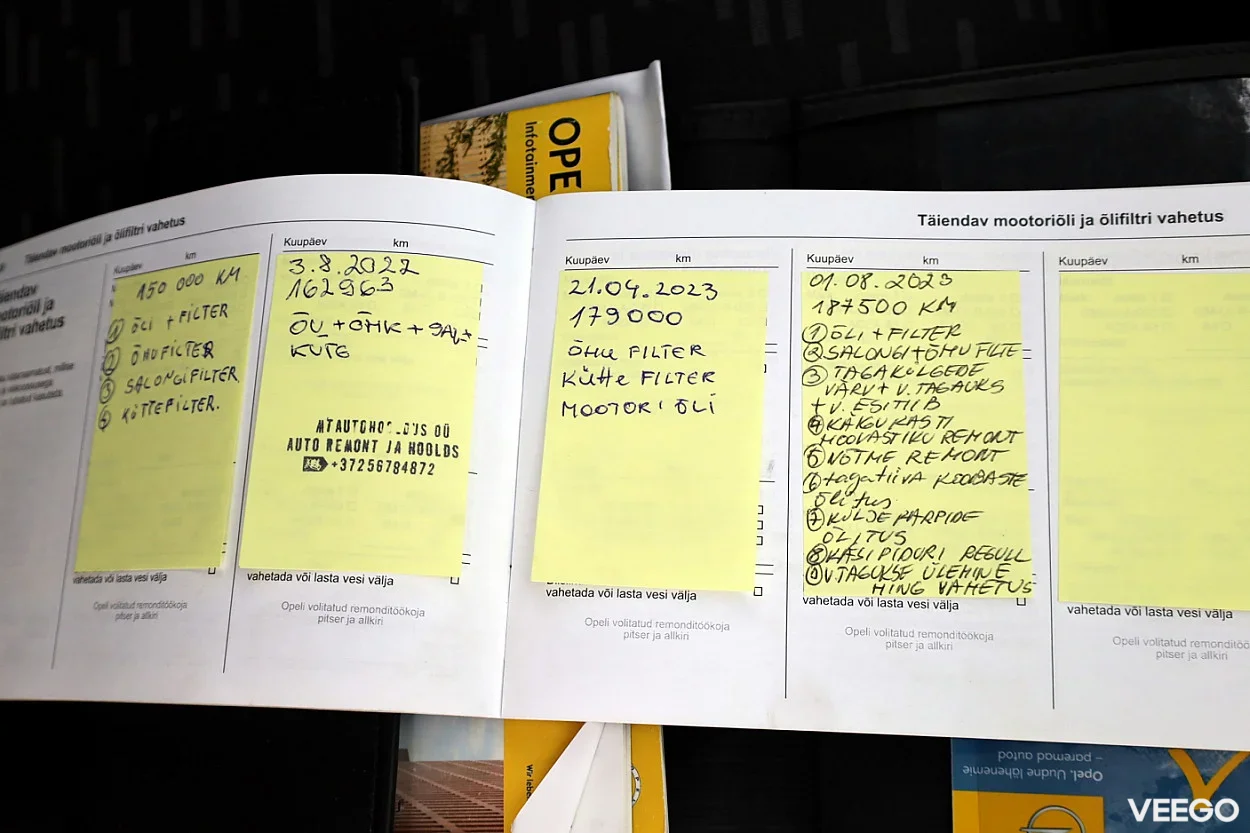 OPE
Infotainmen
Täiendav mootoriõli ja õlifiltri vahetus
Täiendav mootoriõli ja õlifiltri vahetus
Kuupäev
150 000 KM
① ÕLI + FILTER
② ÕHUFILTER
③ SALONGIFILTER
④ KÜTTEFILTER.
vahetada või lasta vesi välja
Opeli volitatud remonditöökoja
pitser ja allkiri
Kuupäev km
3.8.2022
162963
KUTE
AUTO REMONT JA HOOLDS
+37256784872
vahetada või lasta vesi välja
Opeli volitatud remonditöökoja
pitser ja allkiri
Kuupäev km
21.04.2023
179000
ÕHU FILTER
KÜTTE FILTER
MOOTORI ÕLI
vahetada või lasta vesi välja
Opeli volitatud remonditöökoja
pitser ja allkiri
Kuupäev km
01.08.2023
187500 KM
① ÕLI + FILTER
② SALONGI + ÕHU FILTE
③ TAGAKÜLGEDE
VÄRV + V. TAGAUKS
+ V. ESITIIB
④ KÄIGUKASTI
HOOVASTIKU REMONT
⑤ NÖTME REMONT
⑥ tagatiiva KOOBASTE
õlitus
⑦ KÜLJEKARPIDE
ÕLITUS
⑧ KÄSIPIDURI REGULL
⑨ V.TAGUKSE ÜLEMINE
HING VAHETUS
vahetada või lasta vesi välja
Opeli volitatud remonditöökoja
pitser ja allkiri
Kuupäev km
vahetada või lasta vesi välja
Opeli volitatud remonditöö
pitser ja allkiri
Wir lebe
Opel. Uudne lähenemine
– paremad autod
VEEGO